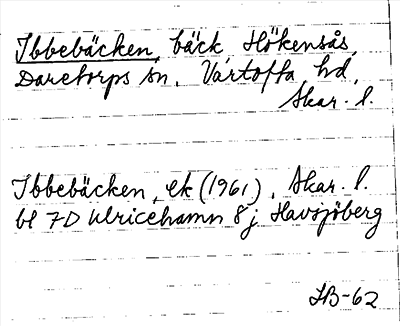 Ibbebäcken, bäck Hökensås,
Daretorps sn, Vartofta hd,
Skar. l.
Ibbebäcken, ek (1961), Skar. l.
bl 7D Ulricehamn 8 j Havsjöberg
IB-62